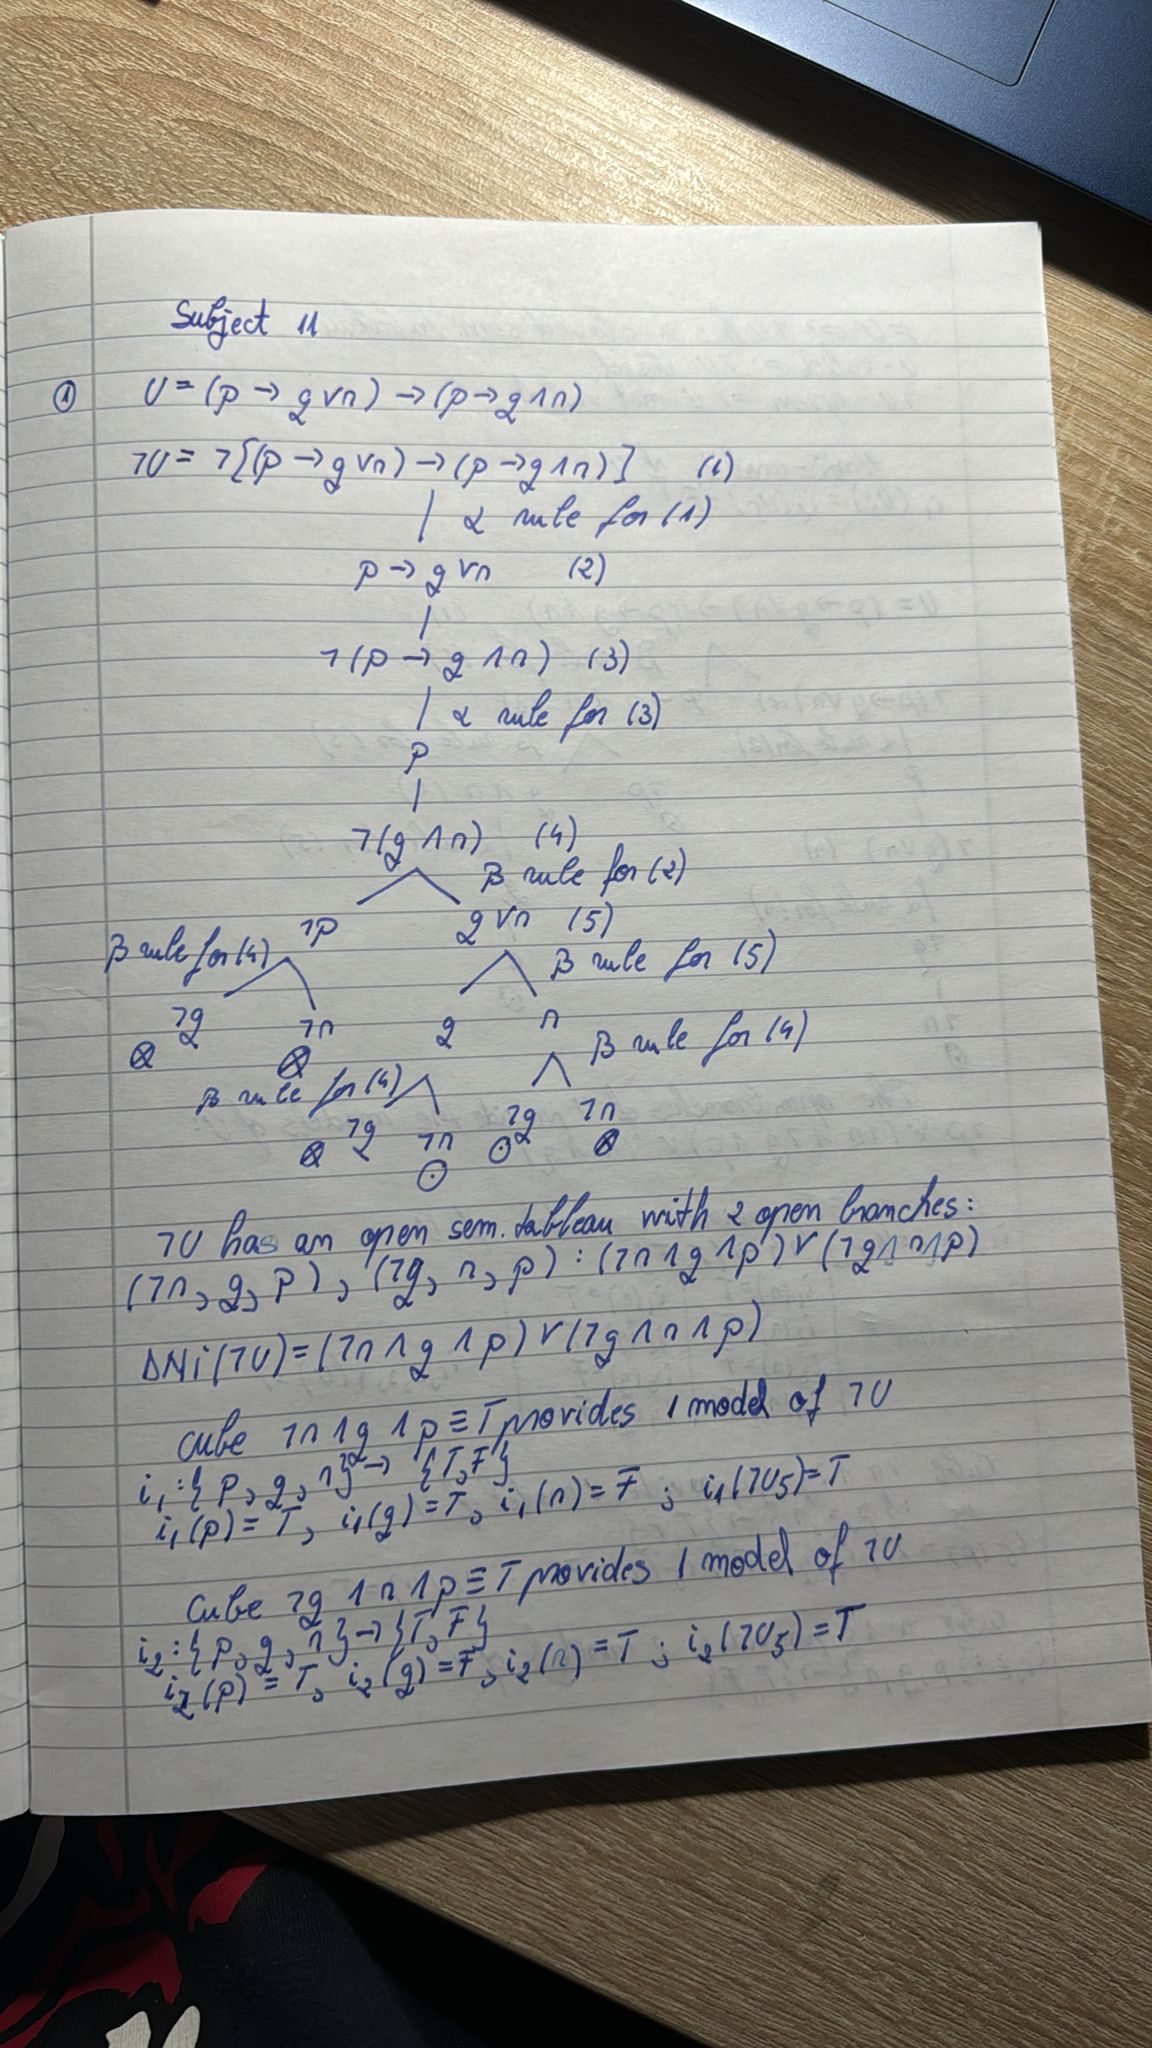 Subject 11
① U = (p → q ∨ r) → (p → q ∧ r)
¬U = ¬[(p → q ∨ r) → (p → q ∧ r)] (1)
| α rule for (1)
p → q ∨ r (2)
|
¬(p → q ∧ r) (3)
| α rule for (3)
p
|
¬(q ∧ r) (4)
β rule for (2)
¬p q ∨ r (5)
β rule for (4) β rule for (5)
¬q ¬r q r
⊗ ⊗ β rule for (4)
β rule for (4)
¬q ¬r ¬q ¬r
⊗ ⊙ ⊙ ⊗
¬U has an open sem. tableau with 2 open branches:
(¬r, q, p), (¬q, r, p) : (¬r ∧ q ∧ p) ∨ (¬q ∧ r ∧ p)
DNF(¬U) = (¬r ∧ q ∧ p) ∨ (¬q ∧ r ∧ p)
cube ¬r ∧ q ∧ p ≡ T provides 1 model of ¬U
i₁: {p, q, r} → {T, F}
i₁(p) = T, i₁(q) = T, i₁(r) = F ; i₁(¬U₅) = T
Cube ¬q ∧ r ∧ p ≡ T provides 1 model of ¬U
i₂: {p, q, r} → {T, F}
i₂(p) = T, i₂(q) = F, i₂(r) = T ; i₂(¬U₅) = T